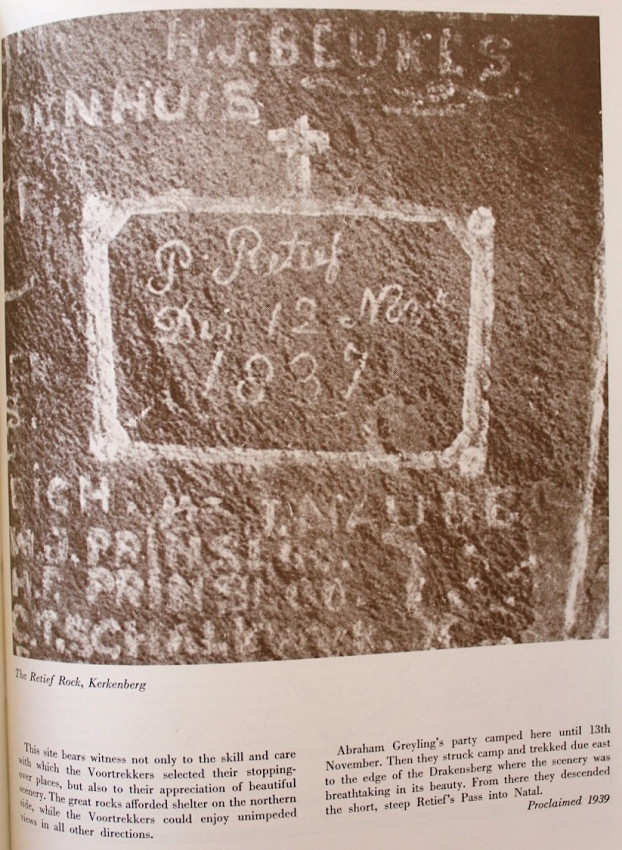 H.J. BEUKES
NHUIS
P. Retief
Den 12 Nov.
1837
LICH
J. NAUDE
PRINSLOO
F PRINSLOO
SCHALKWYK
The Retief Rock, Kerkenberg
This site bears witness not only to the skill and care
with which the Voortrekkers selected their stopping-
over places, but also to their appreciation of beautiful
scenery. The great rocks afforded shelter on the northern
side, while the Voortrekkers could enjoy unimpeded
views in all other directions.
Abraham Greyling's party camped here until 13th
November. Then they struck camp and trekked due east
to the edge of the Drakensberg where the scenery was
breathtaking in its beauty. From there they descended
the short, steep Retief's Pass into Natal.
Proclaimed 1939